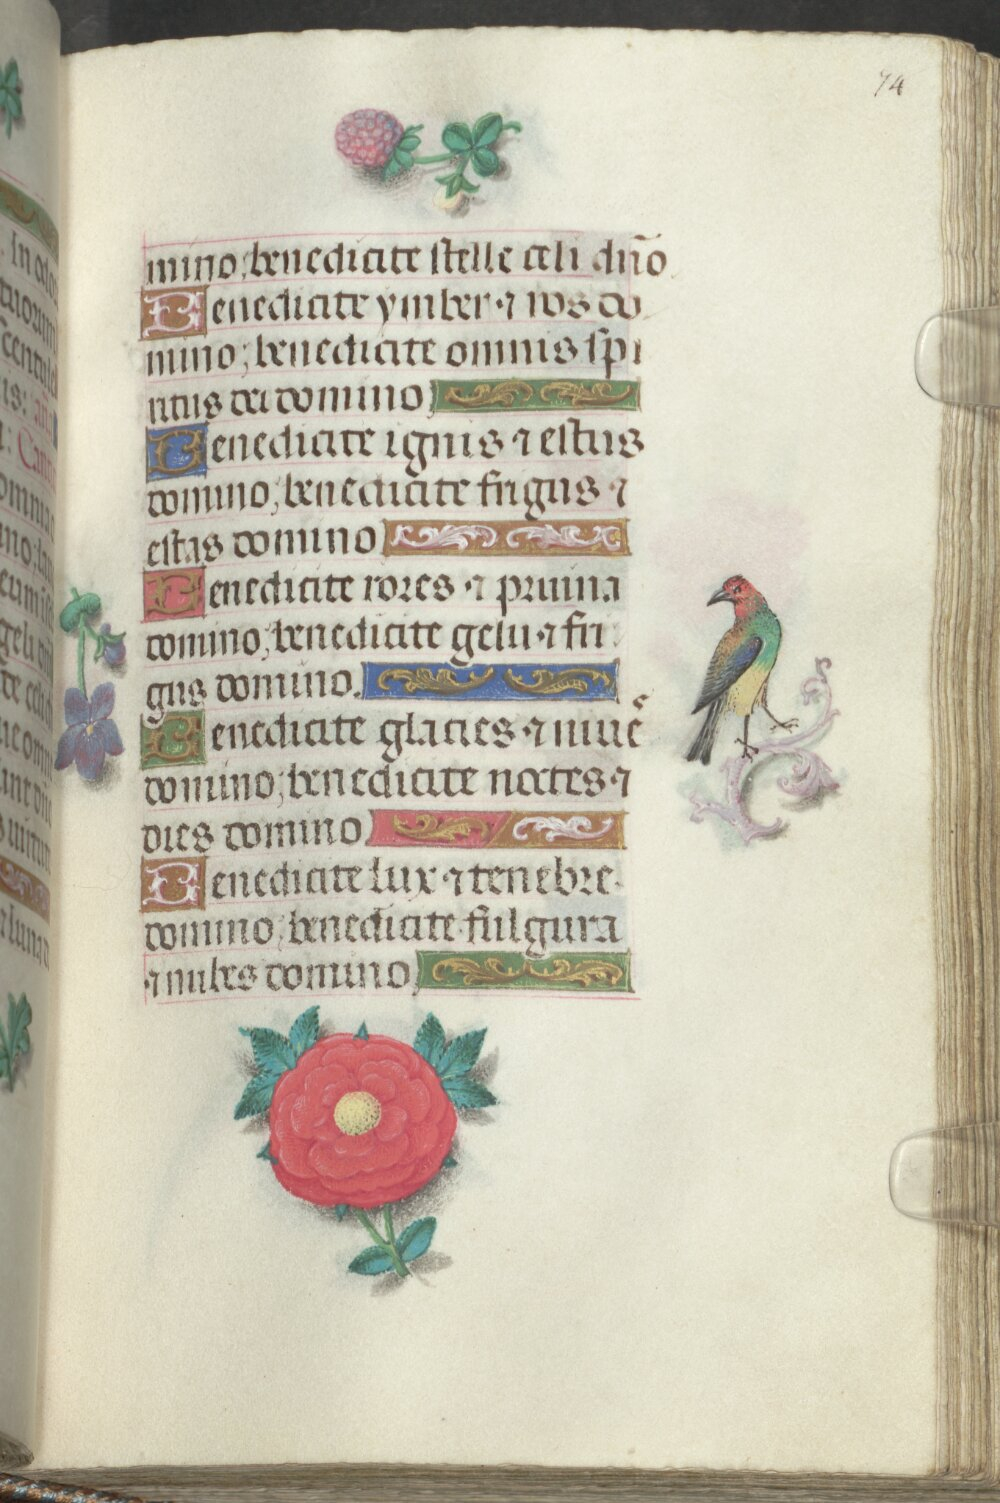 74
mino, benedicite stelle celi dño
Benedicite ymber ⁊ ros do
mino, benedicite omnis spi
ritus dei domino
Benedicite ignis ⁊ estus
domino, benedicite frigus ⁊
estas domino
Benedicite rores ⁊ pruina
domino, benedicite gelu ⁊ fri
gus domino.
Benedicite glacies ⁊ niue᷒
domino, benedicite noctes ⁊
dies domino
Benedicite lux ⁊ tenebre
domino, benedicite fulgura
⁊ nubes domino